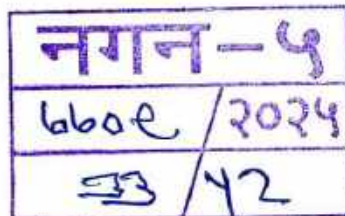 नगन-५
७७०९/२०२५
३३/५२